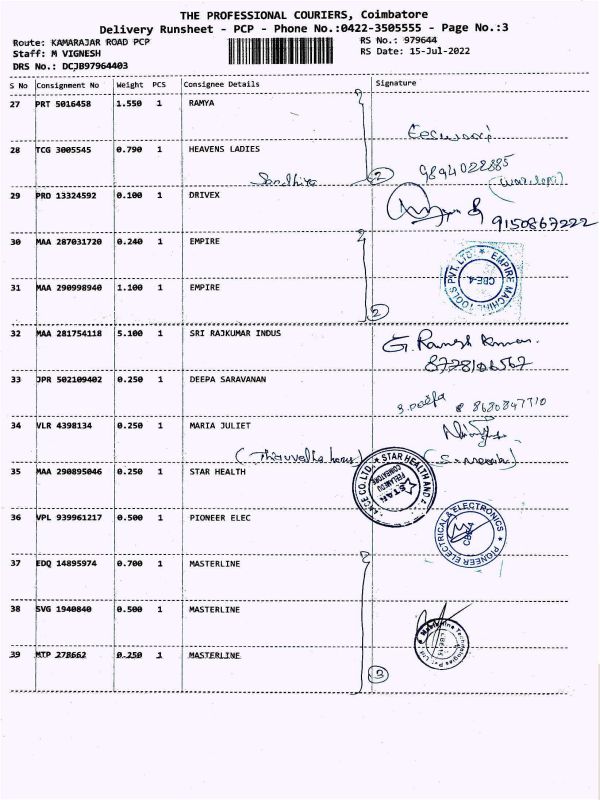 THE PROFESSIONAL COURIERS, Coimbatore
Delivery Runsheet - PCP - Phone No.:0422-3505555 - Page No.:3
Route: KAMARAJAR ROAD PCP
RS No.: 979644
Staff: M VIGNESH
RS Date: 15-Jul-2022
DRS No.: DCJB97964403
S No Consignment No Weight PCS Consignee Details Signature
27 PRT 5016458 1.550 1 RAMYA
Eeswari
28 TCG 3005545 0.790 1 HEAVENS LADIES
9894022885
Sandhiya 2
29 PRO 13324592 0.100 1 DRIVEX
9150867222
30 MAA 287031720 0.240 1 EMPIRE
EMPIRE MACHINE TOOLS PVT. LTD. CBE-4
31 MAA 290998940 1.100 1 EMPIRE
2
32 MAA 281754118 5.100 1 SRI RAJKUMAR INDUS
G. Ramesh Kumar.
8778106567
33 JPR 502109402 0.250 1 DEEPA SARAVANAN
8680847710
34 VLR 4398134 0.250 1 MARIA JULIET
35 MAA 290895046 0.250 1 STAR HEALTH
STAR HEALTH AND ANCE CO. LTD. STAR PEELAMEDU COIMBATORE
36 VPL 939961217 0.500 1 PIONEER ELEC
PIONEER ELECTRICAL & ELECTRONICS CBE-4
37 EDQ 14895974 0.700 1 MASTERLINE
38 SVG 1940840 0.500 1 MASTERLINE
39 MTP 278662 0.250 1 MASTERLINE
3